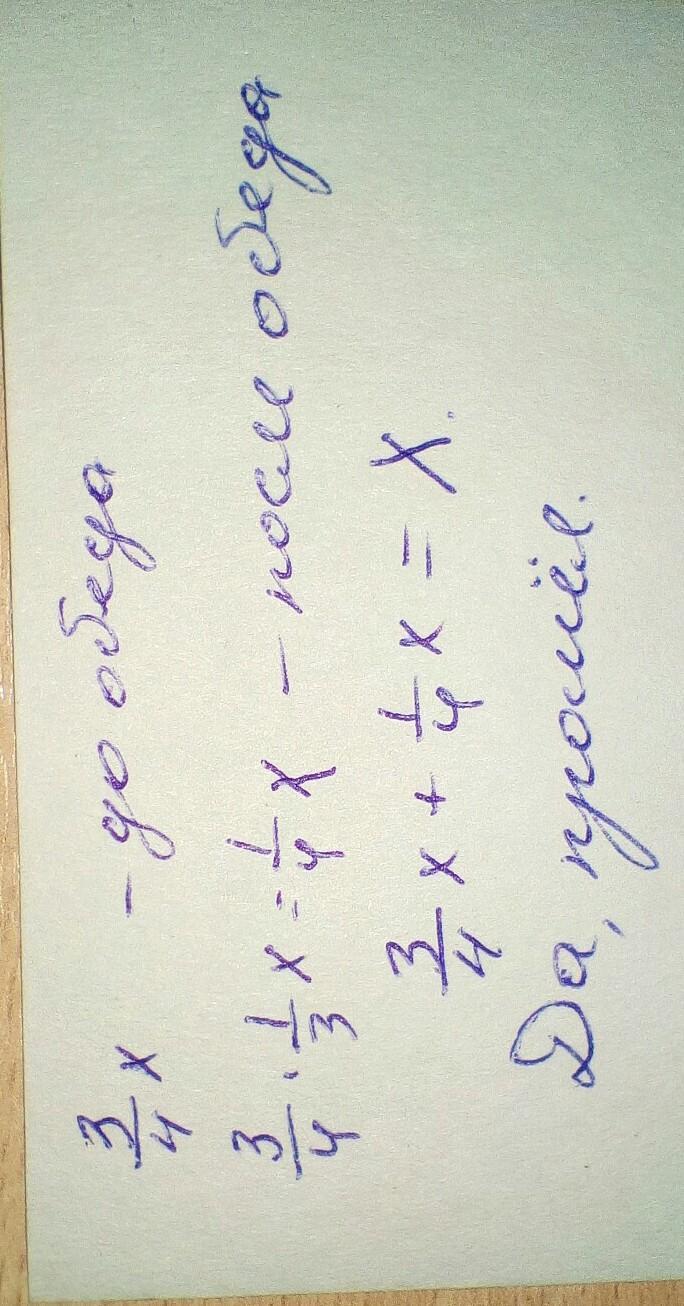 3/4 x - до обеда
3/4 · 1/3 x = 1/4 x - после обеда
3/4 x + 1/4 x = X.
Да, прошёл.